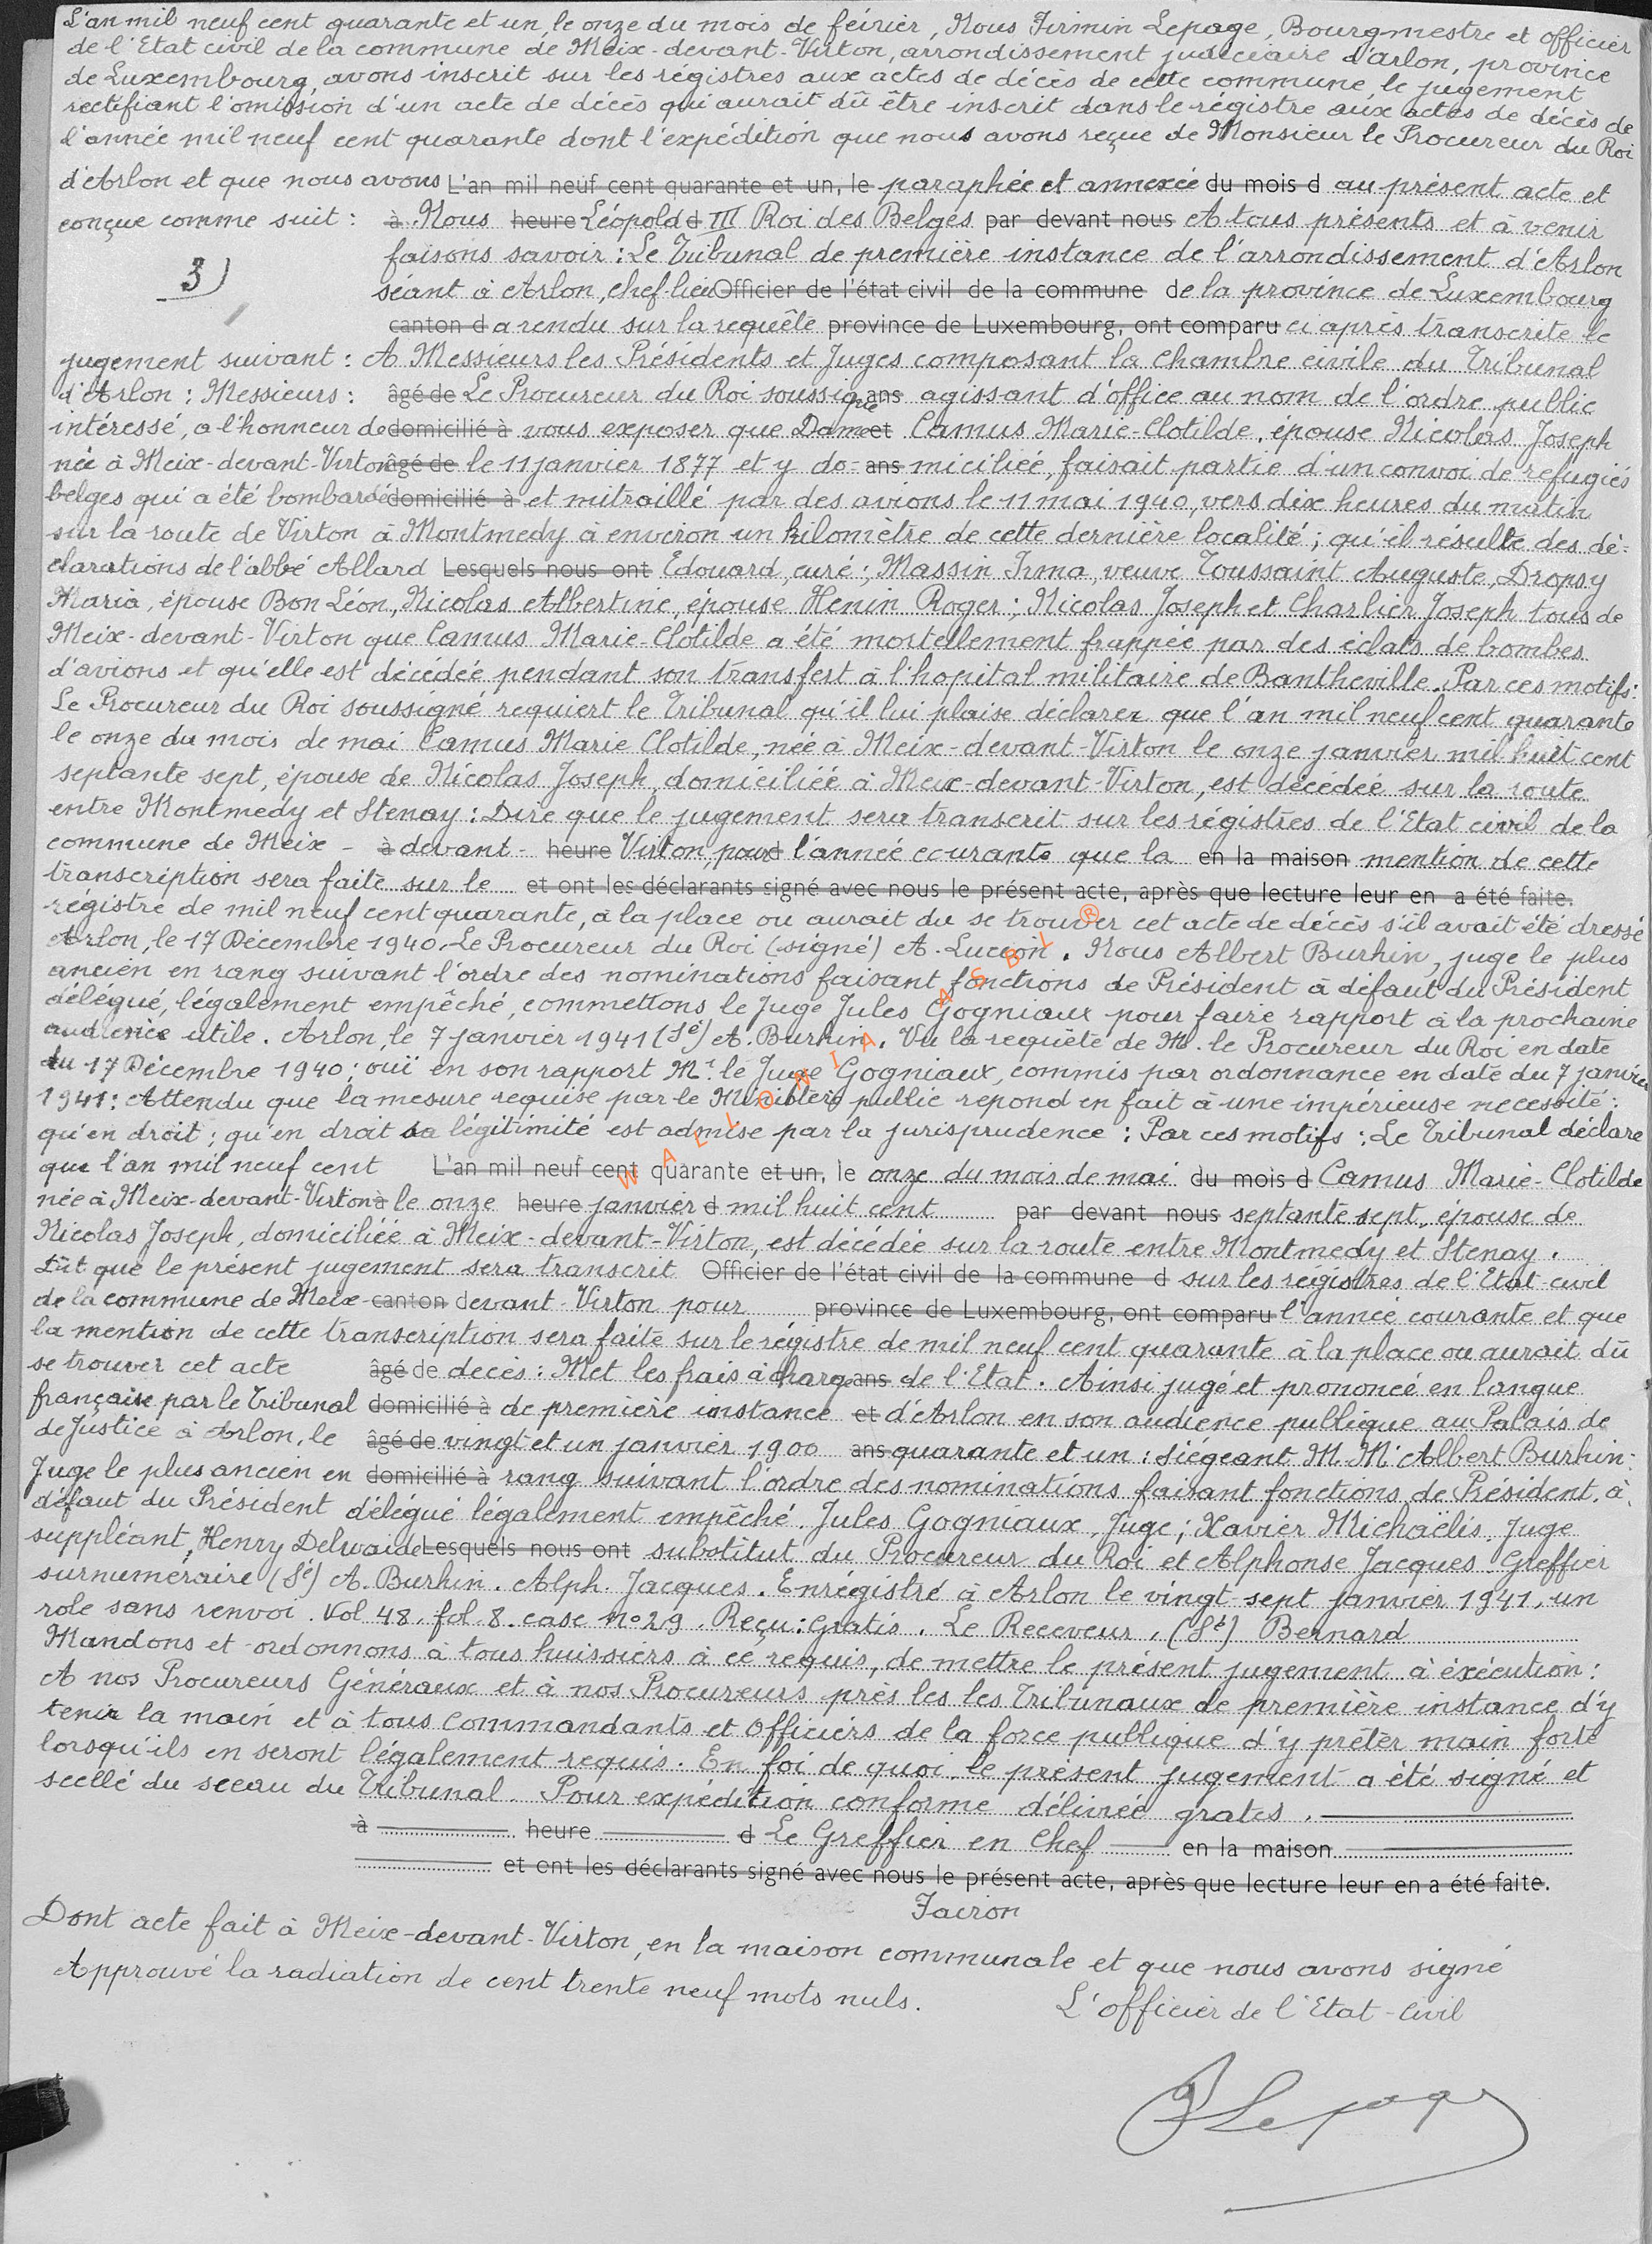 L'an mil neuf cent quarante et un, le onze du mois de février, Nous Firmin Lepage, Bourgmestre et officier
de l'Etat civil de la commune de Meix-devant-Virton, arrondissement judiciaire d'Arlon, province
de Luxembourg, avons inscrit sur les régistres aux actes de décès de cette commune, le jugement
rectifiant l'omission d'un acte de décès qui aurait dû être inscrit dans le régistre aux actes de décès de
l'année mil neuf cent quarante dont l'expédition que nous avons reçue de Monsieur le Procureur du Roi
d'Arlon et que nous avons L'an mil neuf cent quarante et un, le paraphée et annexée du mois d au présent acte et
conçue comme suit : à Nous heure Léopold d III Roi des Belges par devant nous A tous présents et à venir
3) faisons savoir : Le Tribunal de première instance de l'arrondissement d'Arlon
séant à Arlon, chef-lieu Officier de l'état civil de la commune de la province de Luxembourg
canton d a rendu sur la requête province de Luxembourg, ont comparu ci après transcrite le
jugement suivant : A Messieurs les Présidents et Juges composant la chambre civile du Tribunal
d'Arlon : Messieurs : âgé de Le Procureur du Roi soussigné ans agissant d'office au nom de l'ordre public
intéressé, a l'honneur de domicilié à vous exposer que Dame et Camus Marie-Clotilde, épouse Nicolas Joseph
née à Meix-devant-Virton âgé de le 11 janvier 1877 et y do- ans miciliée, faisait partie d'un convoi de réfugiés
belges qui a été bombardé domicilié à et mitraillé par des avions le 11 mai 1940, vers dix heures du matin
sur la route de Virton à Montmedy à environ un kilomètre de cette dernière localité ; qu'il résulte des dé-
clarations de l'abbé Allard Lesquels nous ont Edouard, curé ; Massin Irma, veuve Toussaint Auguste, Dropsy
Maria, épouse Bon Léon, Nicolas Albertine, épouse Henin Roger ; Nicolas Joseph et Charlier Joseph tous de
Meix-devant-Virton que Camus Marie-Clotilde a été mortellement frappée par des éclats de bombes
d'avions et qu'elle est décédée pendant son transfert à l'hopital militaire de Bantheville. Par ces motifs :
Le Procureur du Roi soussigné requiert le Tribunal qu'il lui plaise déclarer que l'an mil neuf cent quarante
le onze du mois de mai Camus Marie Clotilde, née à Meix-devant-Virton le onze janvier mil huit cent
septante sept, épouse de Nicolas Joseph, domiciliée à Meix-devant-Virton, est décédée sur la route
entre Montmedy et Stenay : Dire que le jugement sera transcrit sur les régistres de l'Etat civil de la
commune de Meix - à devant - heure Virton, pour d l'année courante que la en la maison mention de cette
transcription sera faite sur le et ont les déclarants signé avec nous le présent acte, après que lecture leur en a été faite.
régistre de mil neuf cent quarante, à la place ou aurait du se trouver cet acte de décès s'il avait été dressé
Arlon, le 17 Décembre 1940. Le Procureur du Roi (signé) A. Lucion. Nous Albert Burhin, juge le plus
ancien en rang suivant l'ordre des nominations faisant fonctions de Président à défaut du Président
délégué, légalement empêché, commettons le Juge Jules Gogniaux pour faire rapport à la prochaine
audience utile. Arlon, le 7 janvier 1941 (Sé) A. Burhin. Vu la requête de M. le Procureur du Roi en date
du 17 Décembre 1940 ; ouï en son rapport Mr. le Juge Gogniaux, commis par ordonnance en date du 7 janvier
1941 : Attendu que la mesure requise par le Ministère public repond en fait à une impérieuse necessité :
qu'en droit ; qu'en droit sa légitimité est admise par la jurisprudence : Par ces motifs : Le Tribunal déclare
que l'an mil neuf cent L'an mil neuf cent quarante et un, le onze du mois de mai du mois d Camus Marie-Clotilde
née à Meix-devant-Virton à le onze heure janvier d mil huit cent par devant nous septante sept, épouse de
Nicolas Joseph, domiciliée à Meix-devant-Virton, est décédée sur la route entre Montmedy et Stenay.
Dit que le présent jugement sera transcrit Officier de l'état civil de la commune d sur les régistres de l'Etat-civil
de la commune de Meix-canton devant-Virton pour province de Luxembourg, ont comparu l'année courante et que
la mention de cette transcription sera faite sur le régistre de mil neuf cent quarante à la place ou aurait dû
se trouver cet acte âgé de de decès : Met les frais à charge ans de l'Etat. Ainsi jugé et prononcé en langue
française par le Tribunal domicilié à de première instance et d'Arlon en son audience publique au Palais de
de Justice à Arlon, le âgé de vingt et un janvier 1900 ans quarante et un : siégeant M.Mr Albert Burhin :
Juge le plus ancien en domicilié à rang suivant l'ordre des nominations faisant fonctions de Président, à
défaut du Président délégué légalement empêché. Jules Gogniaux, Juge ; Xavier Michaëlis, Juge
suppléant, Henry Delwaide Lesquels nous ont substitut du Procureur du Roi et Alphonse Jacques, Greffier
surnuméraire (Sé) A. Burhin. Alph. Jacques. Enrégistré à Arlon le vingt-sept janvier 1941, un
role sans renvoi. Vol 48. fol. 8. case no 29. Reçu : Gratis. Le Receveur, (Sé) Bernard
Mandons et ordonnons à tous huissiers à ce requis, de mettre le présent jugement à éxécution :
A nos Procureurs Généraux et à nos Procureurs près les les Tribunaux de première instance d'y
tenir la main et à tous Commandants et officiers de la force publique d'y prêter main forte
lorsqu'ils en seront légalement requis. En foi de quoi le présent jugement a été signé et
scellé du sceau du Tribunal. Pour expédition conforme délivrée gratis.
à heure d Le Greffier en Chef en la maison
et ont les déclarants signé avec nous le présent acte, après que lecture leur en a été faite.
Fairon
Dont acte fait à Meix-devant-Virton, en la maison communale et que nous avons signé
Approuvé la radiation de cent trente neuf mots nuls.
L'officier de l'Etat-civil
F Lepage
WAELONIA ASBL ®